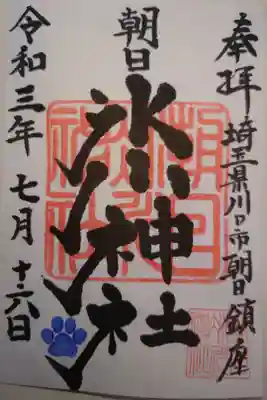 奉拝
埼玉県川口市朝日鎮座
朝日
氷川神社
令和三年七月十六日